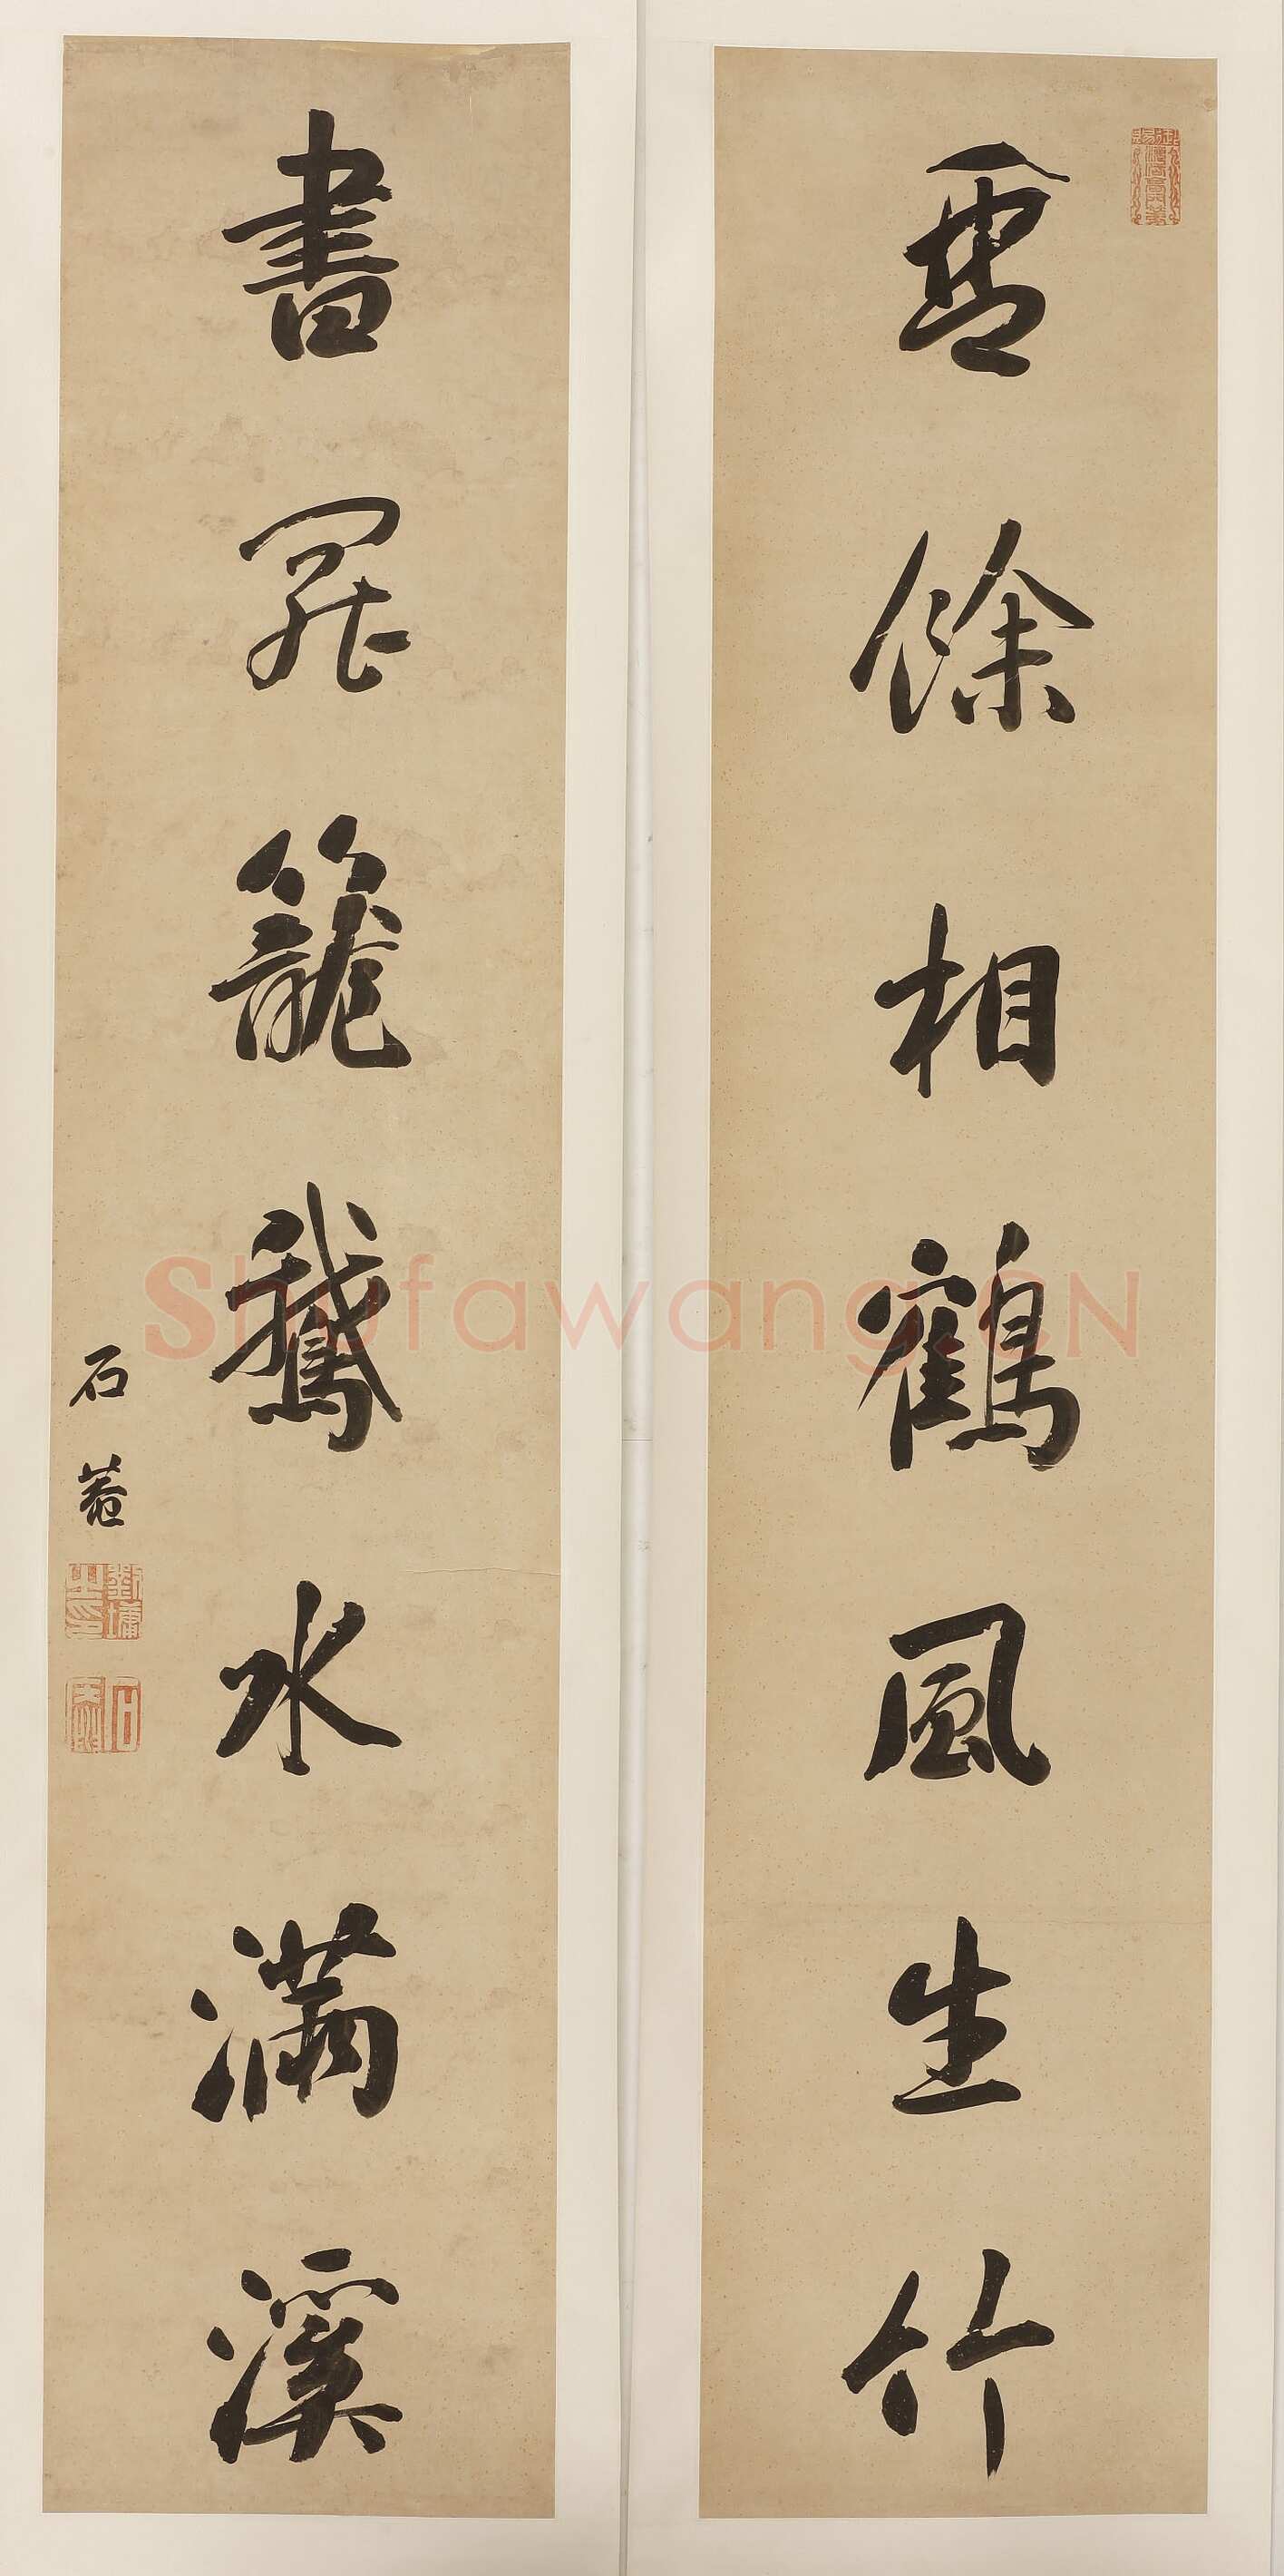 露餘相鶴風生竹
書罷籠鵝水滿溪
石菴
劉墉之印
石菴
Shufawang.CN